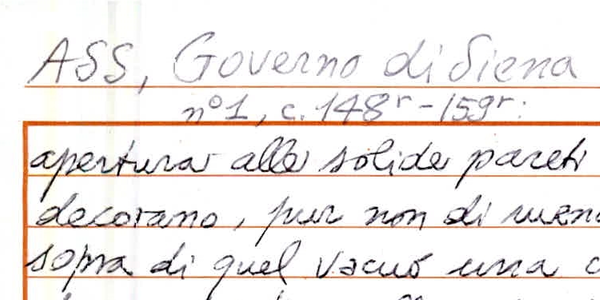 ASS, Governo di Siena
n° 1, c. 148r - 159r:
apertura alle solide pareti
decorano, pur non di
sopra di quel vacuo una